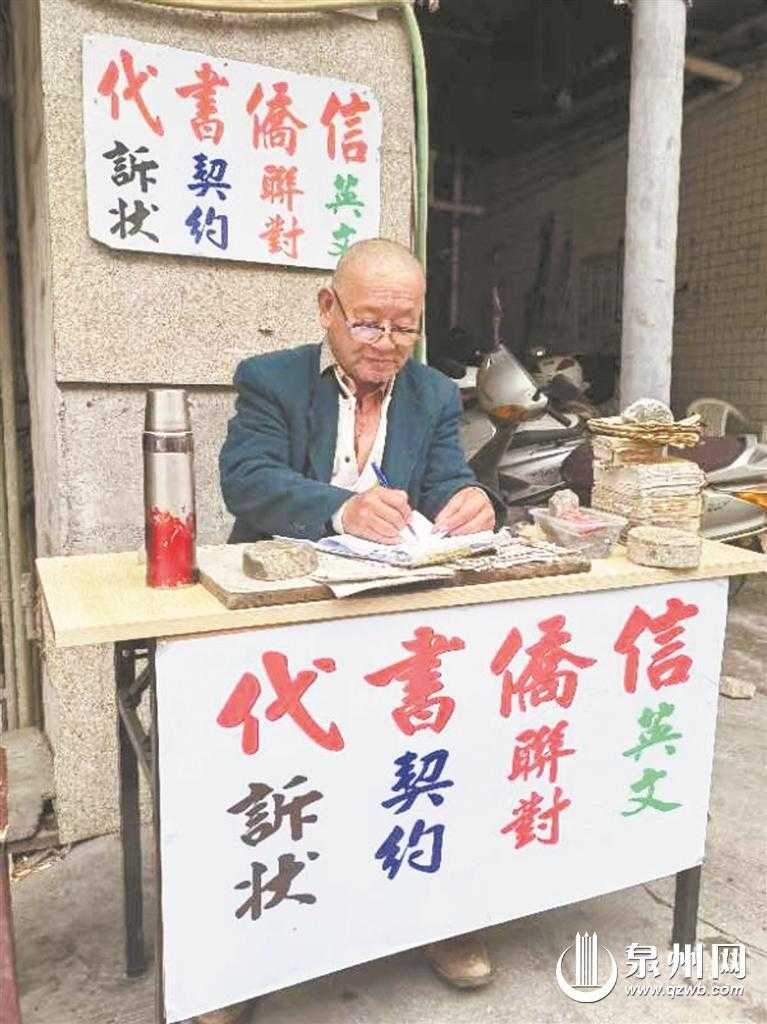 代書僑信
訴状
契約
聯對
英文
代書僑信
訴状
契約
聯對
英文
泉州网
www.qzwb.com